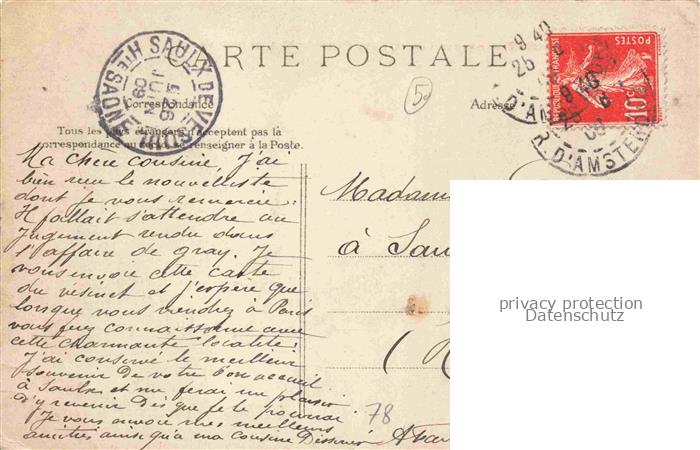 CARTE POSTALE
Correspondance
Adresse
Tous les pays étrangers n'acceptent pas la
correspondance au recto, se renseigner à la Poste.
SAULX DE VESOUL
Hte SAONE
26
JUIN
09
9 40
25
R. D'AMSTERDAM
POSTES
REPUBLIQUE FRANÇAISE
10c
5
Ma chere cousine, J'ai
bien recu le nouvelliste
dont je vous remercie.
Il fallait s'attendre au
Jugement rendu dans
l'affaire de gray. Je
vous envoie cette carte
du vésinet et j'espere que
lorsque vous viendrez à Paris
vous ferez connaissance avec
cette charmante localité.
J'ai conservé le meilleur
souvenir de votre bon accueil
à Saulx et me ferai un plaisir
d'y revenir dès que je le pourrai
Je vous envoie mes meilleurs
amitiés ainsi qu'a ma cousine
Madame
à Sau
(H
78
privacy protection
Datenschutz